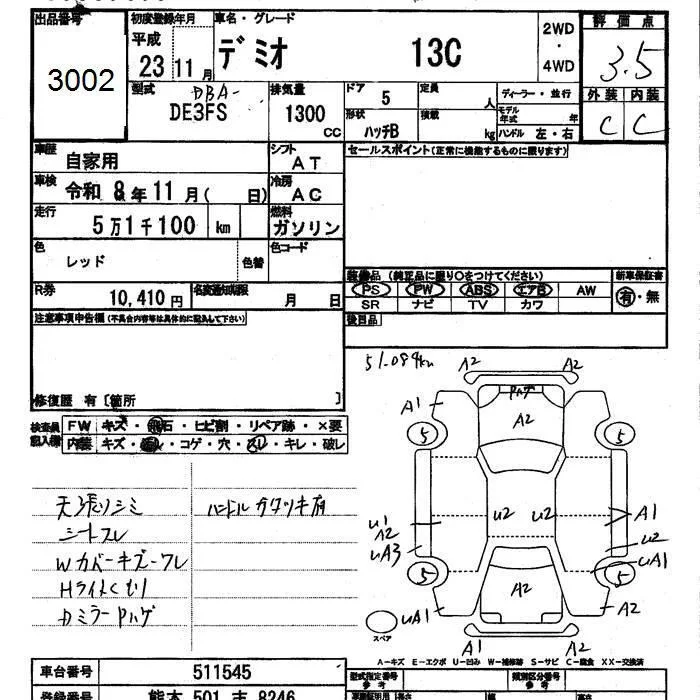 出品番号
3002
初度登録年月
平成
23 11 月
車名・グレード
デミオ 13C
2WD
・
4WD
評価点
3.5
外装 内装
C C
型式 DBA-
DE3FS
排気量
1300
cc
ドア 5
定員 人
形状
ハッチB
積載 kg
ディーラー・並行
モデル年式 年
ハンドル 左・右
車歴
自家用
シフト
AT
セールスポイント(正常に機能するものに限ります)
車検
令和 8年 11月( 日)
冷房
AC
走行
5万1千100 km
燃料
ガソリン
色
レッド
色替
色コード
装備品(純正品に限り〇をつけてください)
新車保証書
PS PW ABS エアB AW
有・無
SR ナビ TV カワ
R券
10,410 円
名変通知期限
月 日
後日品
注意事項申告欄(不具合内容等は具体的に記入して下さい)
修復歴 有〔箇所 〕
検査員記入欄
FW キズ・飛石・ヒビ割・リペア跡・×要
内装 キズ・ ・コゲ・穴・スレ・キレ・破レ
天張りシミ
シートスレ
Wカバーキズ-ワレ
Hライトくもり
Dミラー Pハゲ
ハンドルガタツキ有
51,089km
A2 A2
A1
Pハゲ
A2
5 5
U1
A2
UA3
U2 U2
A1
U2
UA1
5 5
A2
UA1 A2
スペア
A1 A2
A-キズ E-エクボ U-凹み W-補修跡 S-サビ C-腐食 XX-交換済
車台番号
511545
型式指定番号
参考
類別区分番号
参考
登録番号
熊本 501 8246
車輌証明用
参考
長さ
幅
高さ